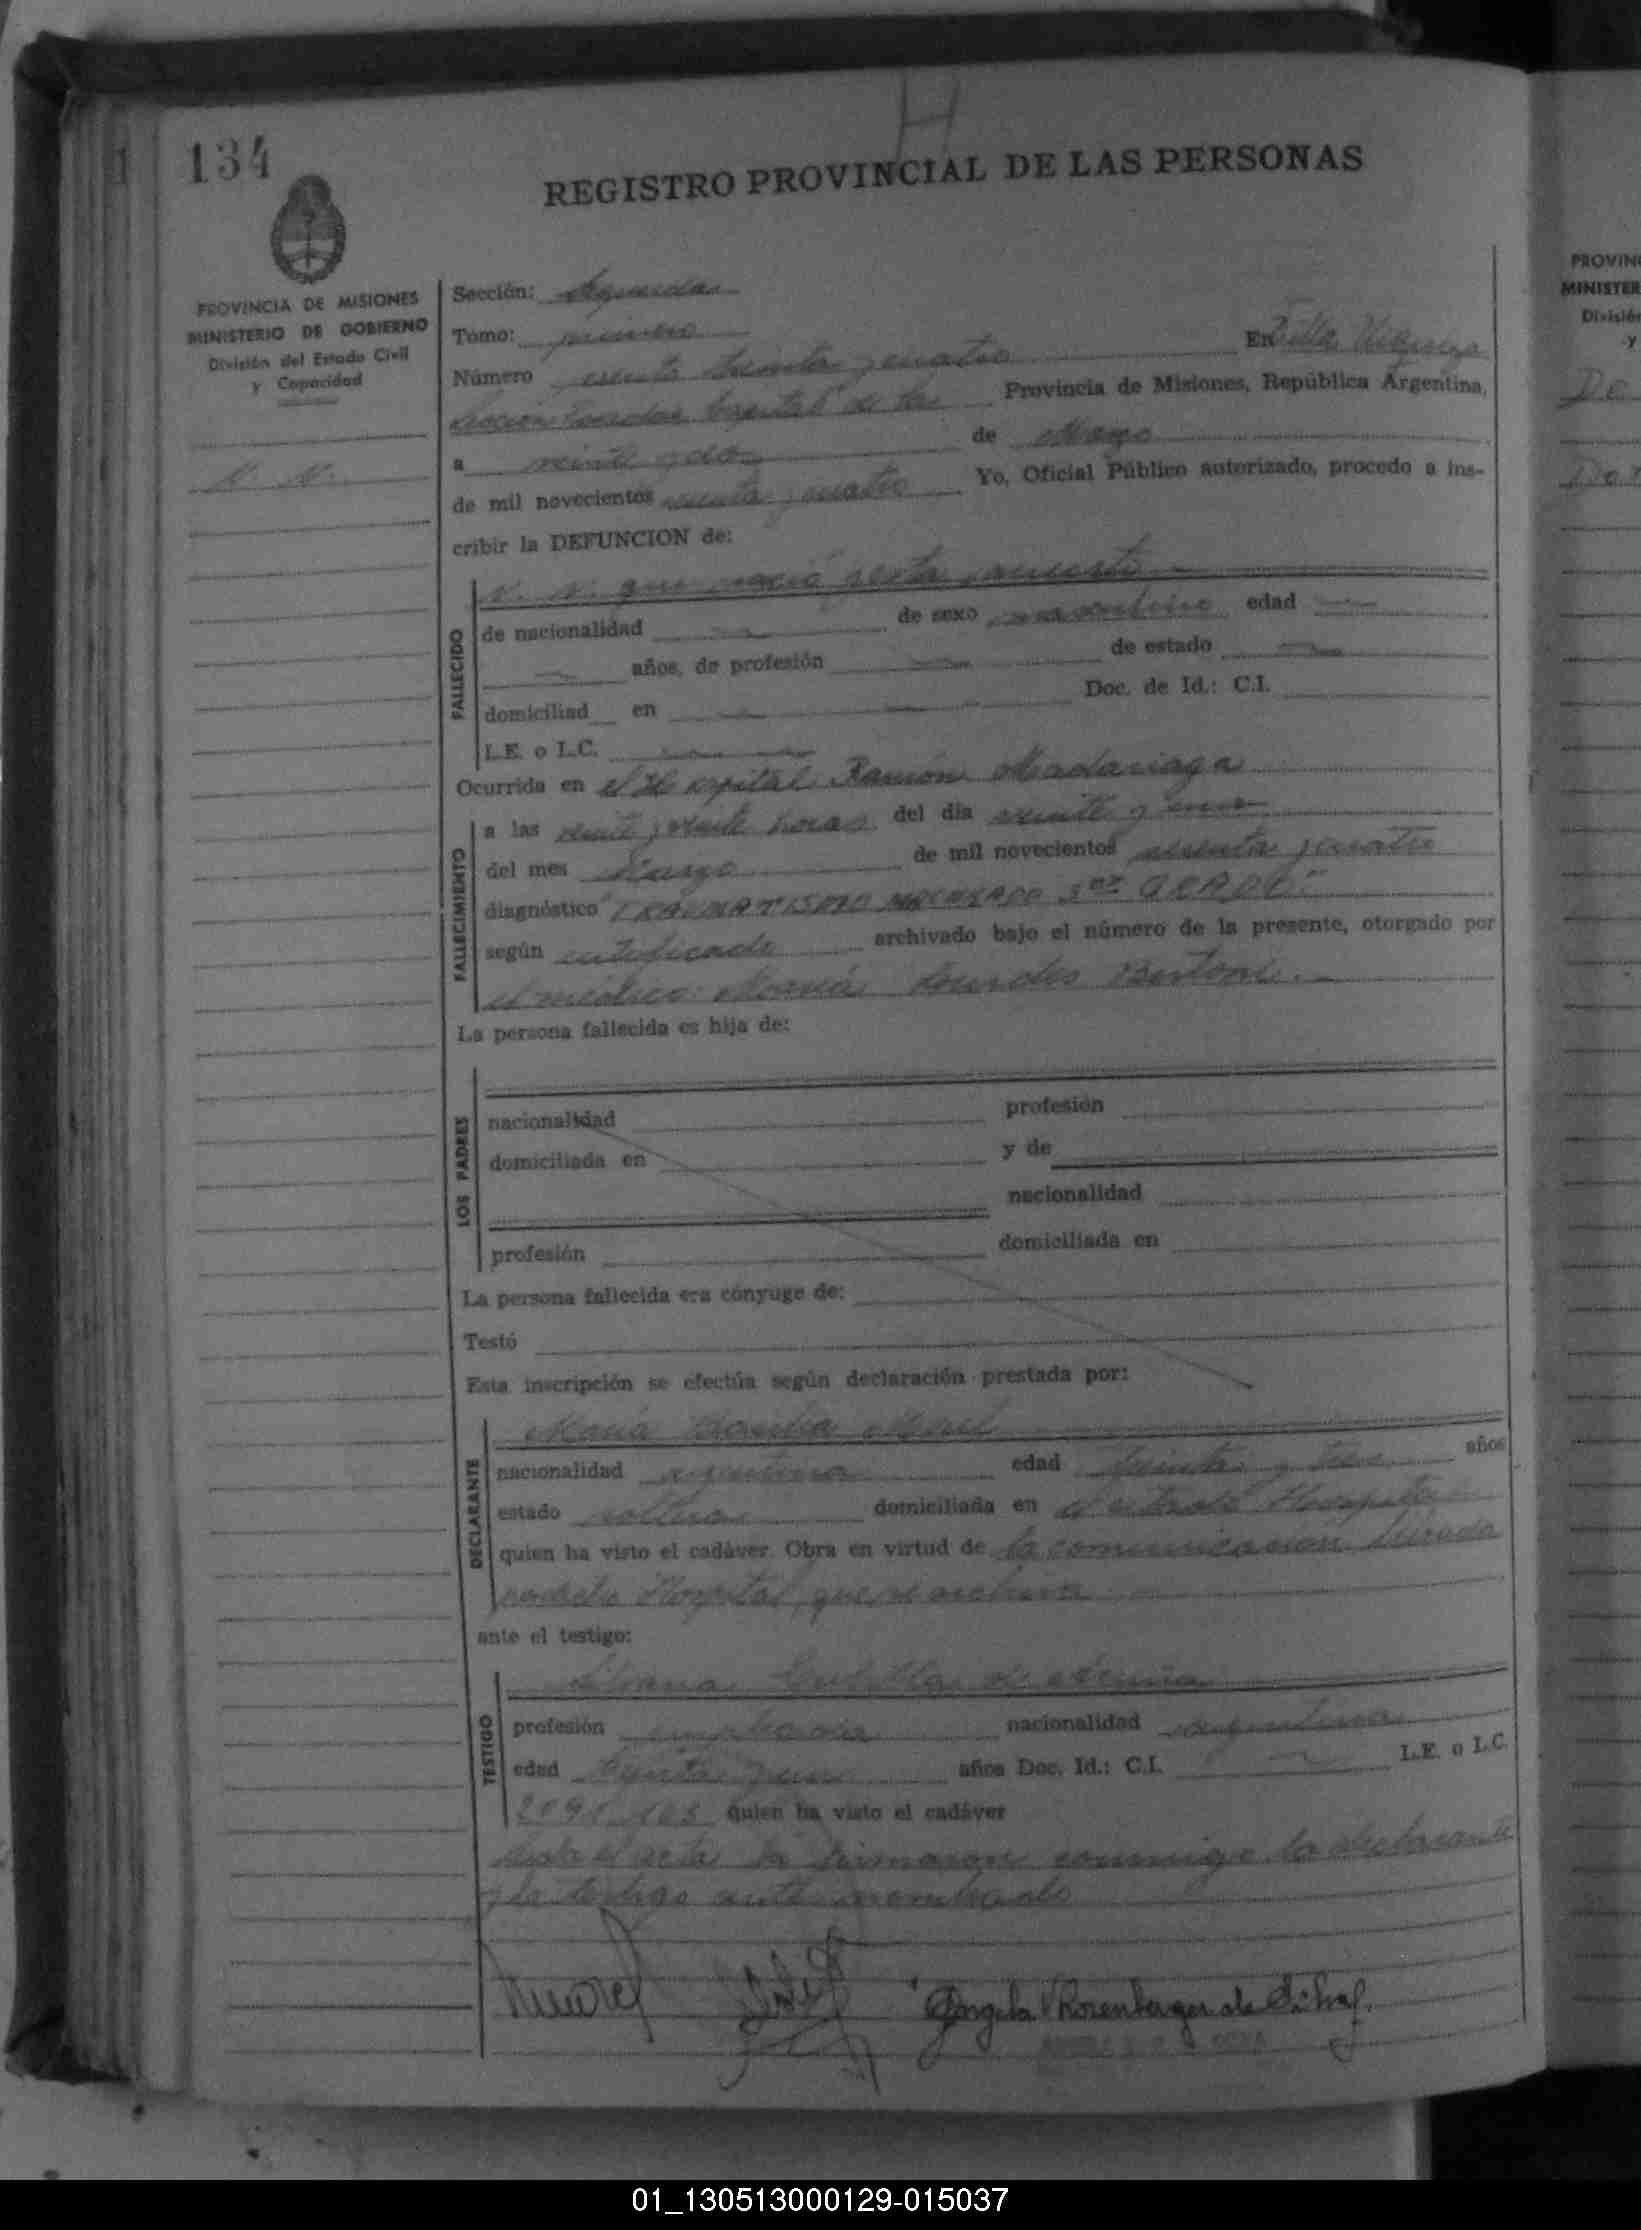 134
H
REGISTRO PROVINCIAL DE LAS PERSONAS
PROVINCIA DE MISIONES
MINISTERIO DE GOBIERNO
División del Estado Civil
y Capacidad
N. N.
Sección: Segunda
Tomo: primero
Número ciento treinta y cuatro En Villa Urquiza
Sección Posadas Capital de la Provincia de Misiones, República Argentina,
a veinte y dos de Marzo
de mil novecientos sesenta y cuatro Yo, Oficial Público autorizado, procedo a ins-
cribir la DEFUNCION de:
FALLECIDO
N. N. que nació y esta muerto
de nacionalidad de sexo masculino edad
años, de profesión de estado
domiciliad en Doc. de Id.: C.I.
L.E. o L.C.
Ocurrida en el Hospital Ramón Madariaga
FALLECIMIENTO
a las veinte y veinte horas del dia veinte y uno
del mes Marzo de mil novecientos sesenta y cuatro
diagnóstico "TRAUMATISMO 3er GRADO"
según certificado archivado bajo el número de la presente, otorgado por
el médico: María Lourdes Bertoni.
La persona fallecida es hija de:
LOS PADRES
nacionalidad profesión
domiciliada en y de
nacionalidad
profesión domiciliada en
La persona fallecida era cónyuge de:
Testó
Esta inscripción se efectúa según declaración prestada por:
DECLARANTE
María
nacionalidad argentina edad treinta y tres años
estado soltera domiciliada en el citado Hospital
quien ha visto el cadáver. Obra en virtud de la comunicación librada
por dicho Hospital, que se archiva
ante el testigo:
TESTIGO
de
profesión empleada nacionalidad argentina
edad treinta y uno años Doc. Id.: C.I. L.E. o L.C.
quien ha visto el cadáver
Leida el acta la firmaron conmigo la declarante
y la testigo ante nombrado
Angela Rosenberger de Silva